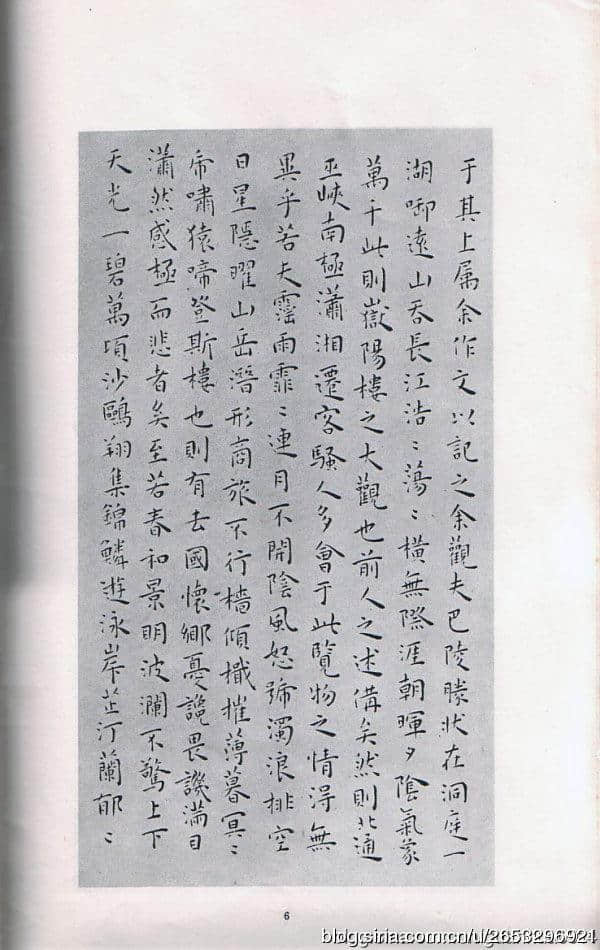 于其上属余作文以記之余觀夫巴陵勝状在洞庭一
湖啣遠山吞長江浩〻蕩〻橫無際涯朝暉夕陰氣象
萬千此則嶽陽樓之大觀也前人之述備矣然則北通
巫峽南極瀟湘遷客騷人多會于此覽物之情得無
異乎若夫霪雨霏〻連月不開陰風怒號濁浪排空
日星隱曜山岳潛形商旅不行檣傾檝摧薄暮冥〻
虎嘯猿啼登斯樓也則有去國懷鄉憂讒畏譏滿目
瀟然感極而悲者矣至若春和景明波瀾不驚上下
天光一碧萬頃沙鷗翔集錦鱗遊泳岸芷汀蘭郁〻
6
blog.sina.com.cn/u/2653296921